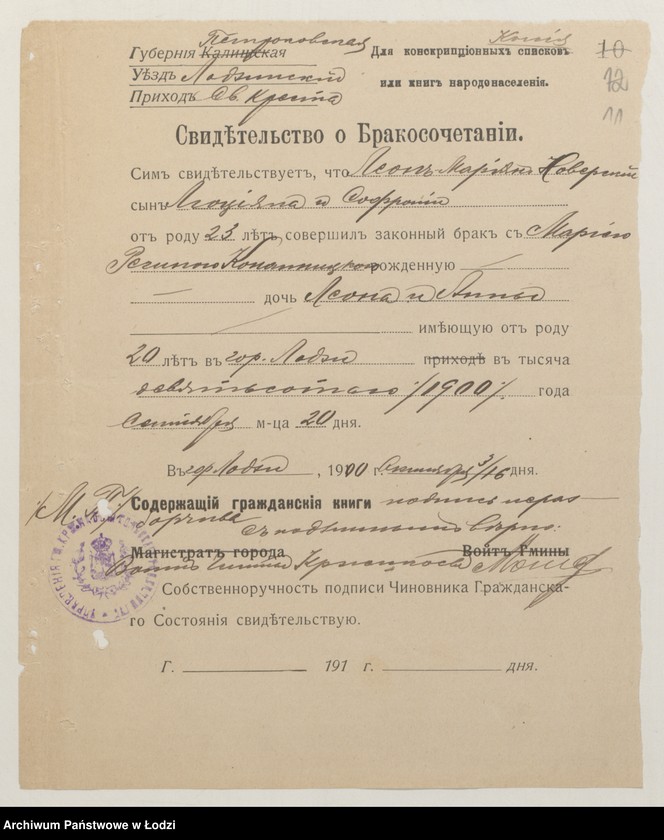 Копія
Петроковская
Губернія Калишская
Для конскрипціонныхъ списковъ
10
Уѣздъ Лодзинскій
или книгъ народонаселенія.
12
Приходъ Св. Креста
11
Свидѣтельство о Бракосочетаніи.
Симъ свидѣтельствуетъ, что Леонъ Маріянъ
сынъ Люціяна и Софіи
отъ роду 23 лѣтъ совершилъ законный бракъ съ Маріею
Региною рожденную
дочь Леона и Анны
имѣющую отъ роду
20 лѣтъ въ гор. Лодзи приходѣ въ тысяча
девятьсотаго /1900/. года
Сентября м-ца 20 дня.
Въ гор. Лодзи, 1900 г. 3/16 дня.
/М.П./ Содержащій гражданскія книги подпись нераз-
борчива
съ подлиннымъ вѣрно:
Магистратъ города Войтъ Гмины
Войтъ Гмины
Собственноручность подписи Чиновника Гражданска-
го Состоянія свидѣтельствую.
Г. 191 г. дня.
Archiwum Państwowe w Łodzi